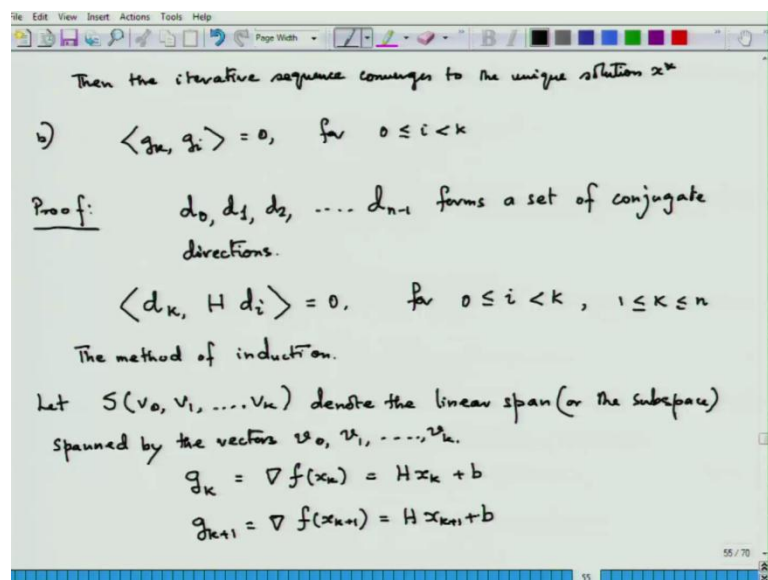 File Edit View Insert Actions Tools Help
Page Width
B I
Then the iterative sequence converges to the unique solution x*
b) ⟨g_k, g_i⟩ = 0, for 0 ≤ i < k
Proof: d_0, d_1, d_2, .... d_{n-1} forms a set of conjugate
directions.
⟨d_k, H d_i⟩ = 0. for 0 ≤ i < k, 1 ≤ k ≤ n
The method of induction.
Let S(v_0, v_1, .... v_k) denote the linear span (or the subspace)
spanned by the vectors v_0, v_1, ...., v_k.
g_k = ∇ f(x_k) = H x_k + b
g_{k+1} = ∇ f(x_{k+1}) = H x_{k+1} + b
55 / 70
55